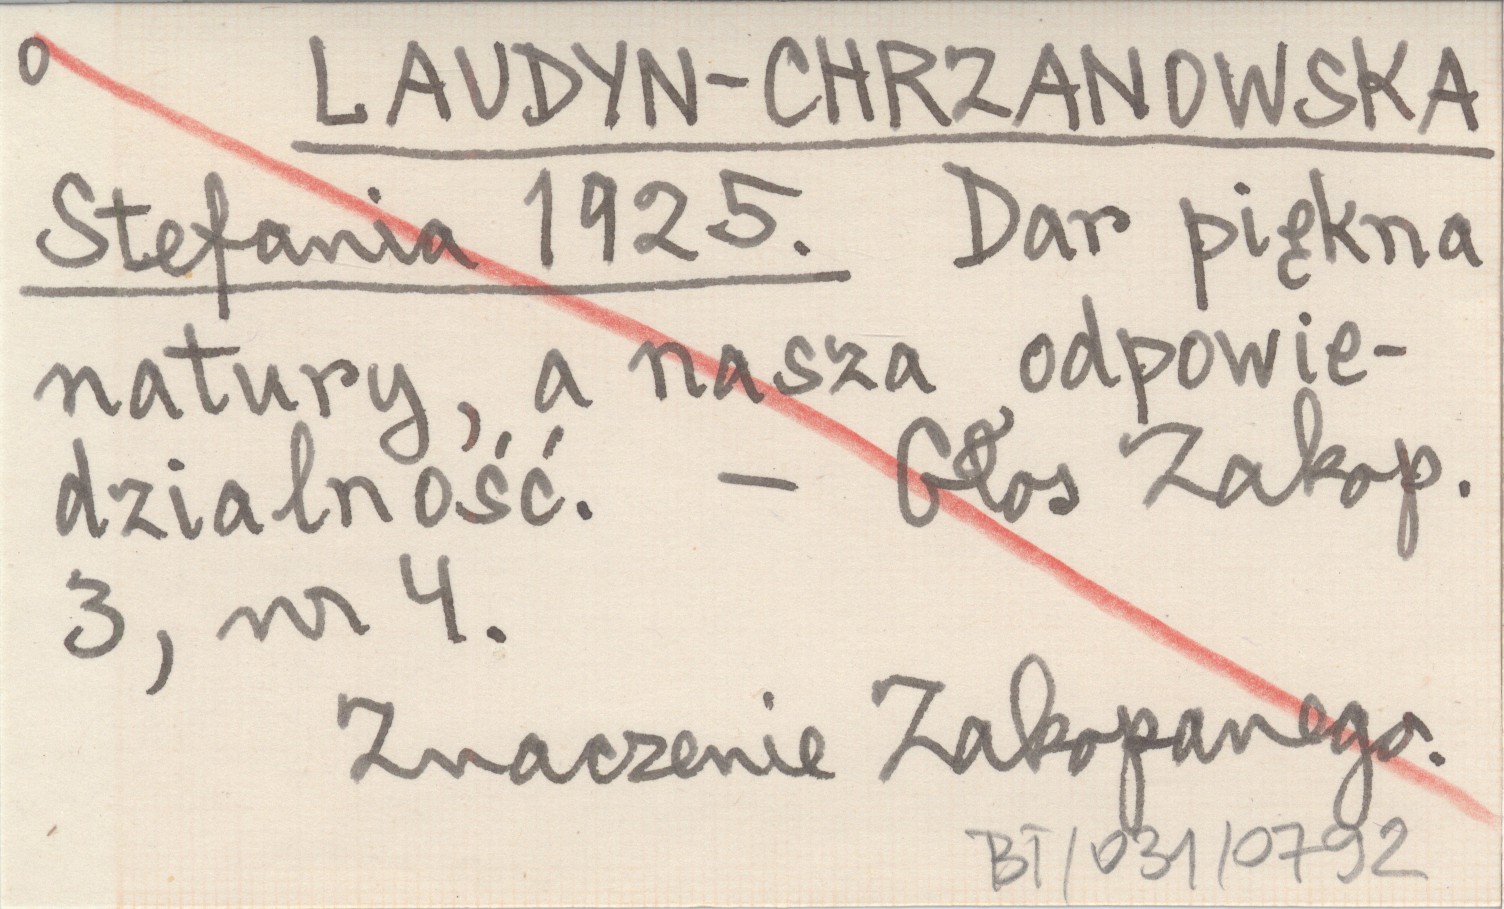 o LAUDYN-CHRZANOWSKA
Stefania 1925. Dar piękna
natury, a nasza odpowie-
dzialność. — Głos Zakop.
3, nr 4.
Znaczenie Zakopanego.
BT/031/0792